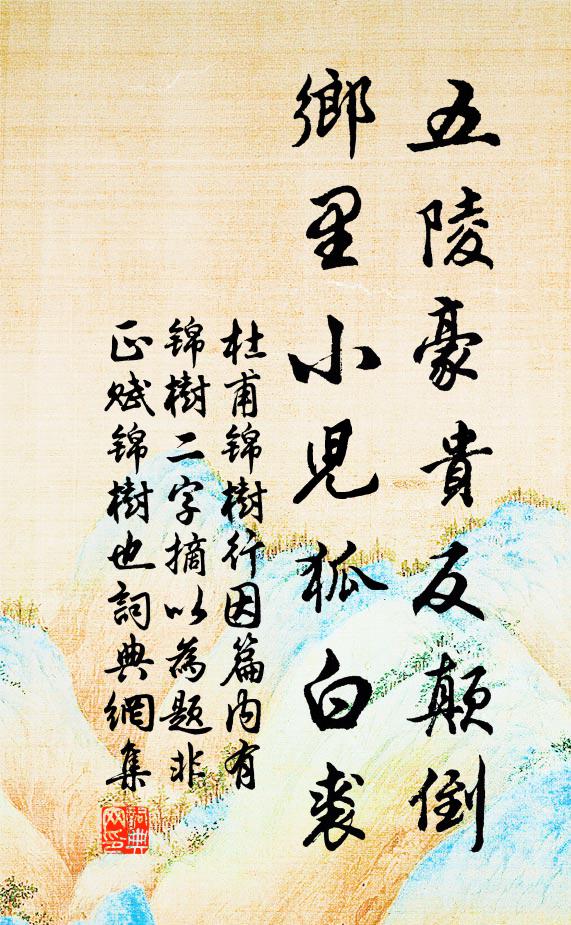 五陵豪貴反顛倒
鄉里小兒狐白裘
杜甫錦樹行因篇內有
錦樹二字摘以為題非
正賦錦樹也詞典網集